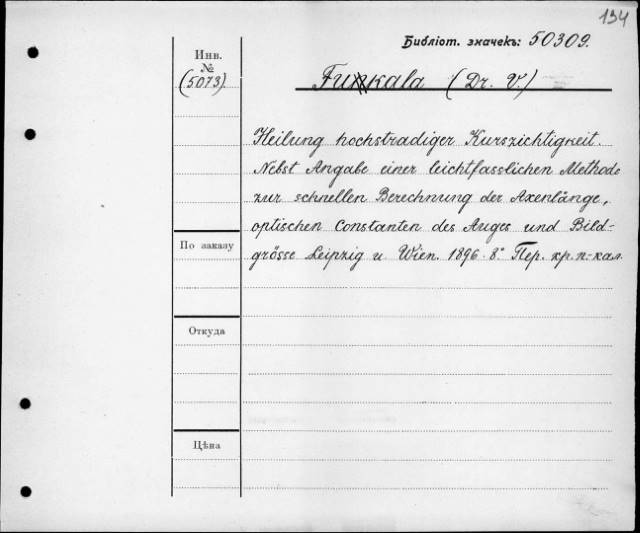 134
Библіот. значекъ: 50309.
Инв.
№
(5073)
Fukala (Dr. V.)
Heilung hochstradiger Kurszichtigkeit.
Nebst Angabe einer leichtfasslichen Methode
zur schnellen Berechnung der Axenlänge,
optischen Constanten des Auges und Bild-
grösse Leipzig u. Wien. 1896. 8° Пер. кр. п.-кал.
По заказу
Откуда
Цѣна